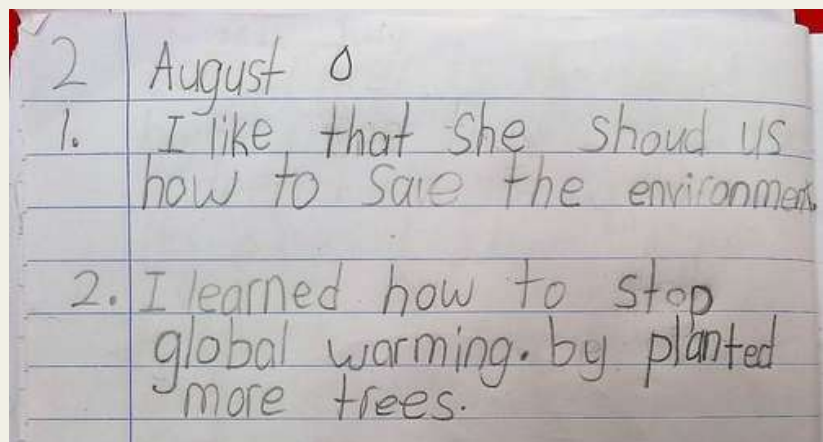 2 August 0
1. I like that she shoud us
how to save the environment.
2. I learned how to stop
global warming. by planted
more trees.